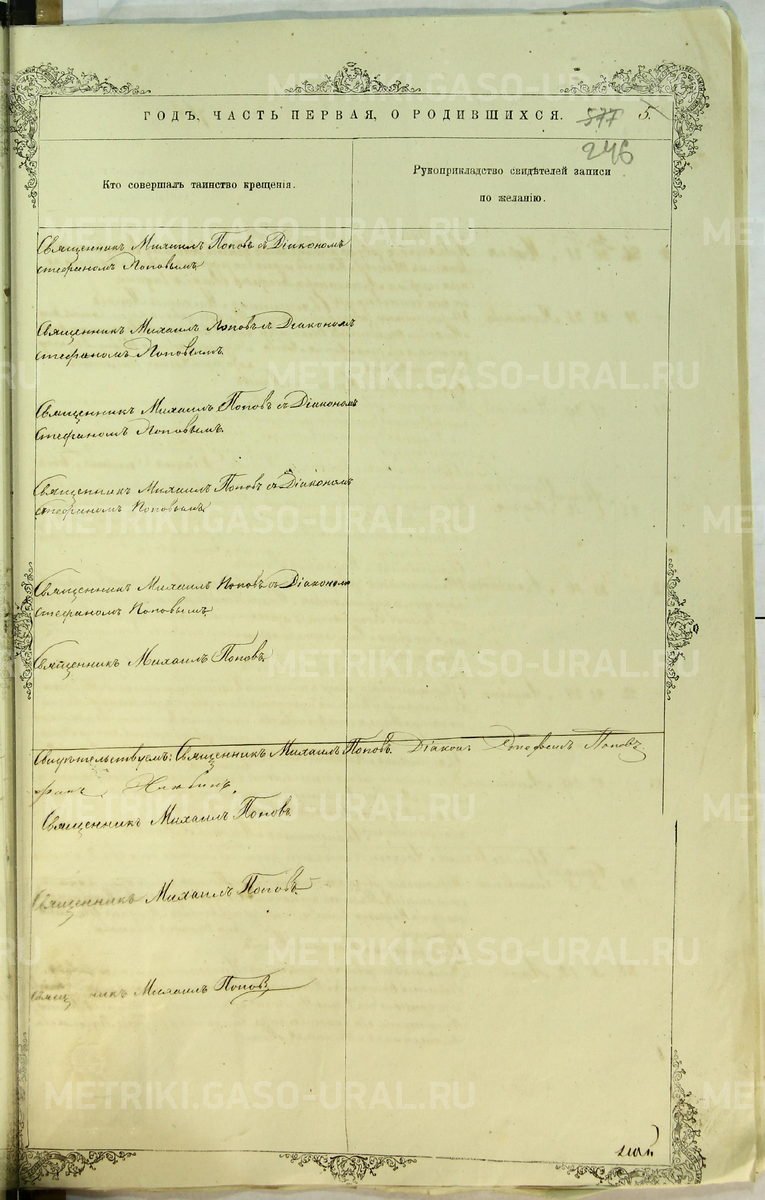 ГОДЪ, ЧАСТЬ ПЕРВАЯ, О РОДИВШИХСЯ. 577 5.
246
Кто совершалъ таинство крещенія.
Рукоприкладство свидѣтелей записи
по желанію.
Священникъ Михаилъ Поповъ съ Діакономъ
Стефаномъ Поповымъ
Священникъ Михаилъ Поповъ съ Діакономъ
Стефаномъ Поповымъ
Священникъ Михаилъ Поповъ съ Діакономъ
Стефаномъ Поповымъ
Священникъ Михаилъ Поповъ съ Діакономъ
Стефаномъ Поповымъ
Священникъ Михаилъ Поповъ съ Діакономъ
Стефаномъ Поповымъ
Священникъ Михаилъ Поповъ
Свидѣтельствуемъ: Священникъ Михаилъ Поповъ. Діаконъ Поповъ
Священникъ Михаилъ Поповъ
Священникъ Михаилъ Поповъ
Священникъ Михаилъ Поповъ
май
METRIKI.GASO-URAL.RU